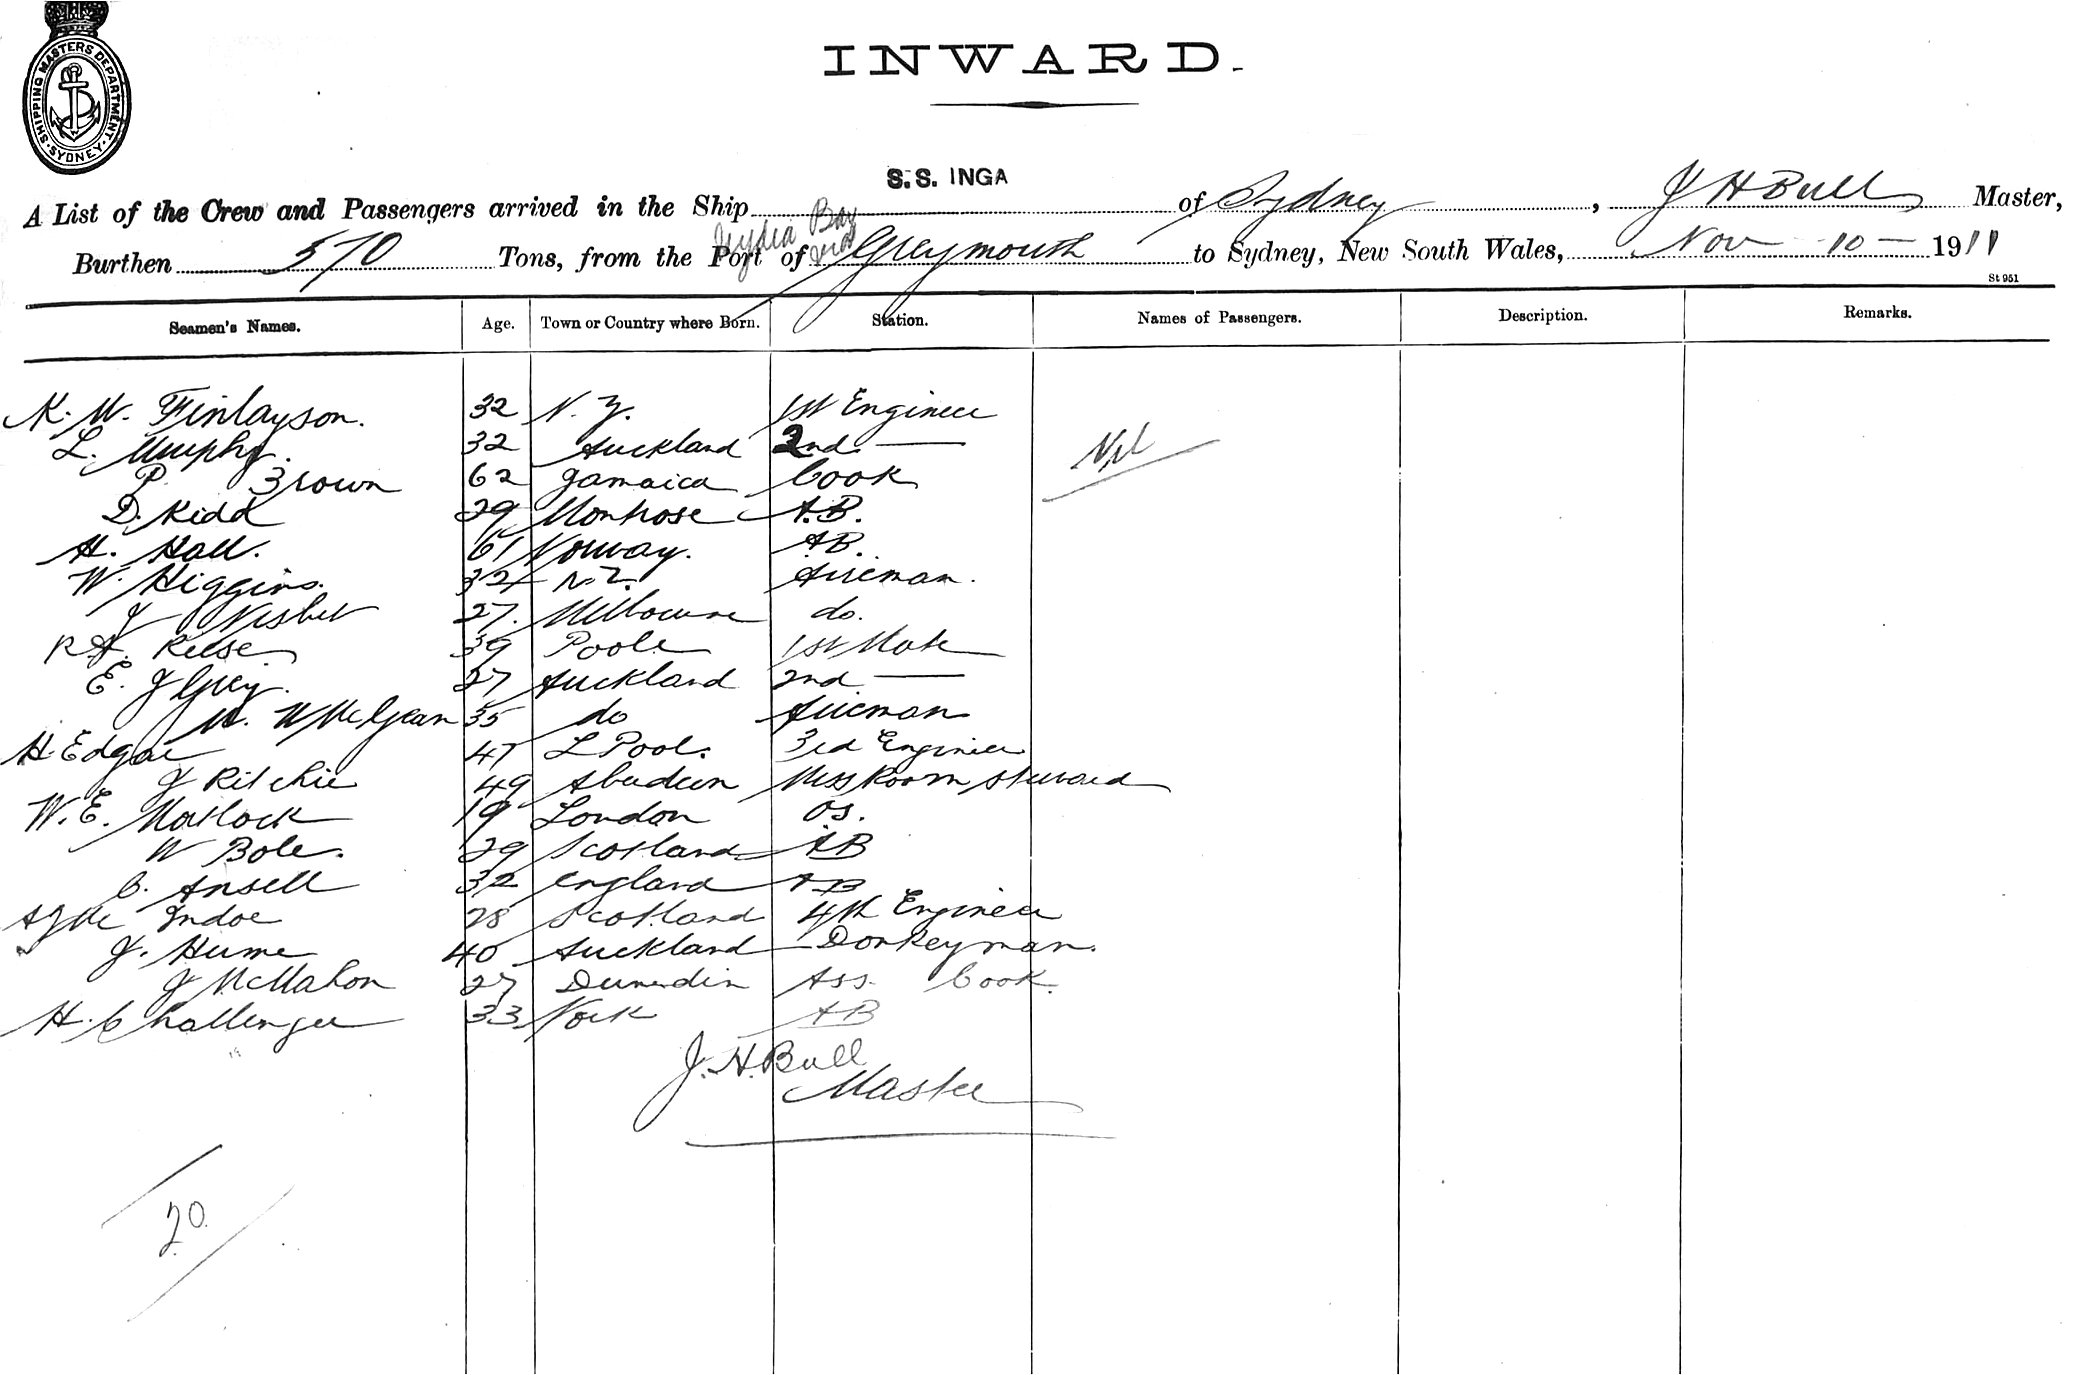 SHIPPING MASTERS DEPARTMENT
SYDNEY
INWARD.
S.S. INGA
A List of the Crew and Passengers arrived in the Ship of Sydney, J H Bull Master,
Bay
Burthen 570 Tons, from the Port of via Greymouth to Sydney, New South Wales, Nov 10 1911
St 951
Seamen's Names. Age. Town or Country where Born. Station. Names of Passengers. Description. Remarks.
K. W. Finlayson. 32 N. Z. 1st Engineer
L. Murphy. 32 Auckland 2nd — Nil
P Brown 62 Jamaica Cook
D. Kidd 29 Montrose A.B.
H. Hall. 61 Norway. AB.
W. Higgins. 32 N.Z. Fireman.
J Nisbet 27. Melbourne do.
R. Reese 39 Poole 1st Mate
E. J Grey. 27 Auckland 2nd —
W McGean 35 do Fireman
H. Edgar 47 L Pool. 3rd Engineer
J Ritchie 49 Aberdeen Mess Room Steward
W. E. Matlock 19 London OS.
W Bole. 29 Scotland AB
C. Ansell 32 England AB
Indoe 28 Scotland 4th Engineer
J. Hume 40 Auckland Donkeyman.
J McMahon 27 Dunedin Ass. Cook.
H. Challenger 33 York AB
J. H. Bull
Master
20